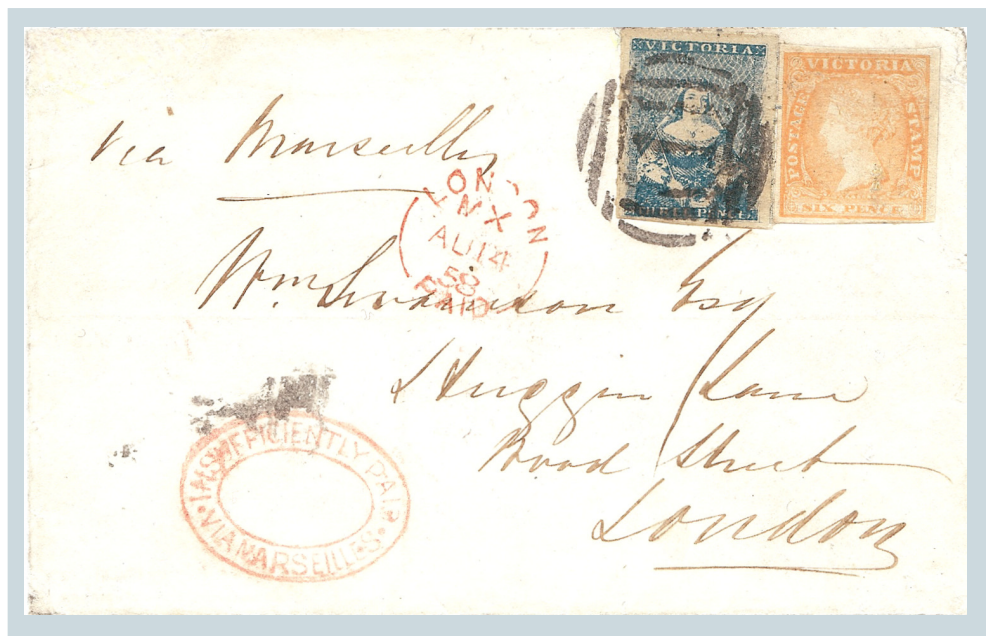 VICTORIA
VICTORIA
POSTAGE
STAMP
SIX PENCE
via Marseilles
LONDON
MX
AU 14
58
PAID
Wm Swainson Esq
Huggin Lane
Wood Street
London
INSUFFICIENTLY PAID
• VIA MARSEILLES •